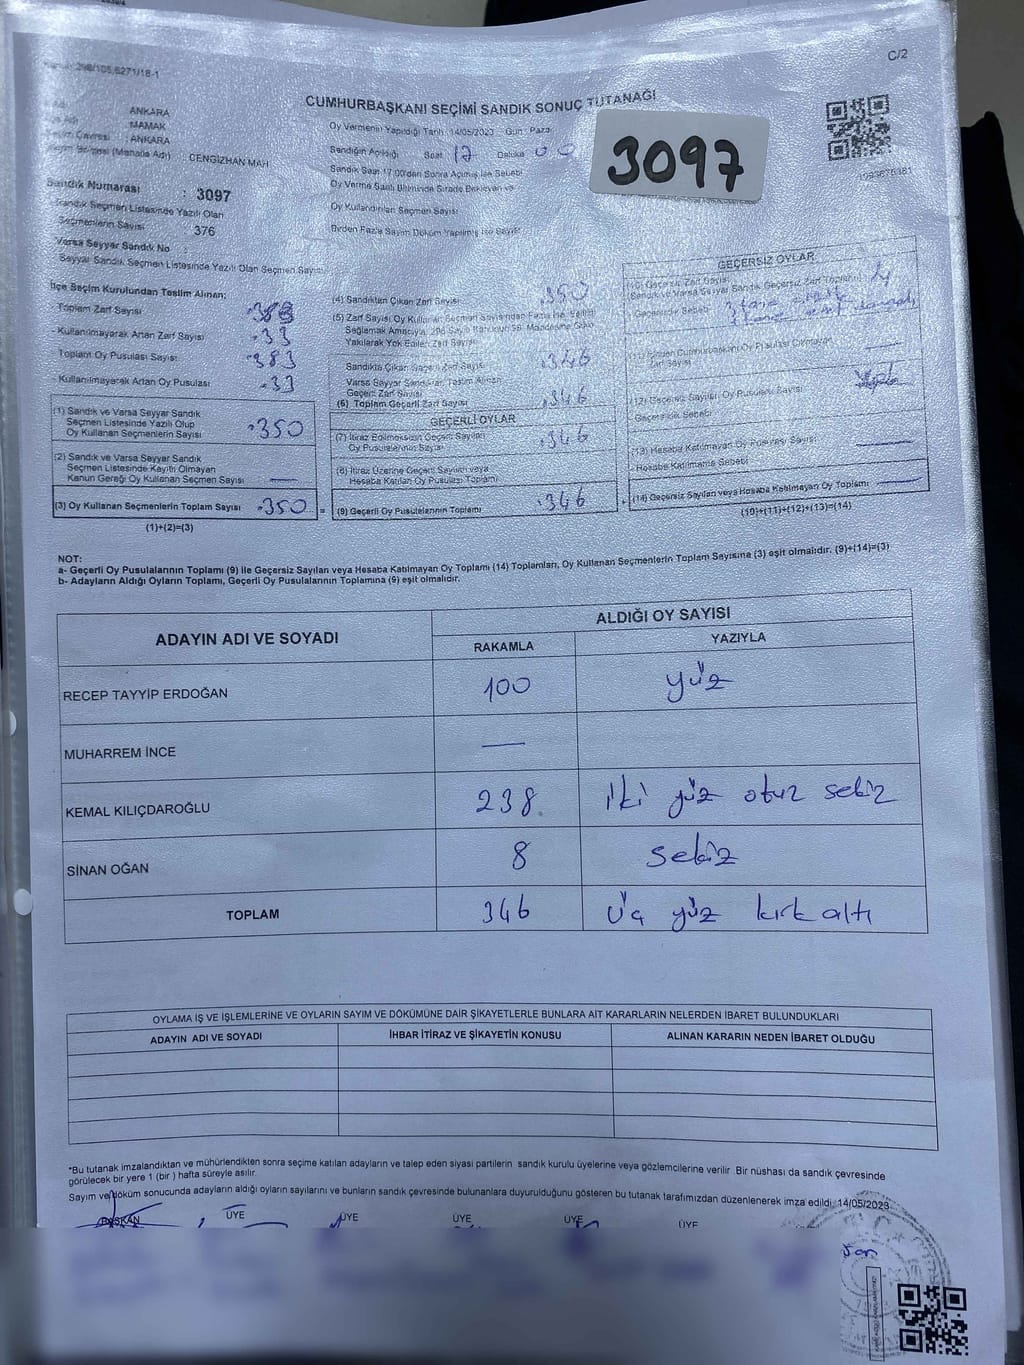 298/105,6271/18-1
C/2
CUMHURBAŞKANI SEÇİMİ SANDIK SONUÇ TUTANAĞI
3097
ANKARA
MAMAK
ANKARA
CENGİZHAN MAH
Sandık Numarası : 3097
Sandık Seçmen Listesinde Yazılı Olan
Seçmenlerin Sayısı : 376
Varsa Seyyar Sandık No :
Seyyar Sandık Seçmen Listesinde Yazılı Olan Seçmen Sayısı
Oy Vermenin Yapıldığı Tarih : 14/05/2023 Gün : Pazar
Sandığın Açıldığı Saat 17 Dakika 00
Sandık Saat 17.00'den Sonra Açılmış İse Sebebi
Oy Verme Saati Bitiminde Sırada Bekleyen ve
Oy Kullandırılan Seçmen Sayısı
Birden Fazla Sayım Döküm Yapılmış İse Sayısı
İlçe Seçim Kurulundan Teslim Alınan:
Toplam Zarf Sayısı 383
- Kullanılmayarak Artan Zarf Sayısı 33
Toplam Oy Pusulası Sayısı 383
- Kullanılmayarak Artan Oy Pusulası 33
(1) Sandık ve Varsa Seyyar Sandık
Seçmen Listesinde Yazılı Olup
Oy Kullanan Seçmenlerin Sayısı 350
(2) Sandık ve Varsa Seyyar Sandık
Seçmen Listesinde Kayıtlı Olmayan
Kanun Gereği Oy Kullanan Seçmen Sayısı —
(3) Oy Kullanan Seçmenlerin Toplam Sayısı 350 =
(1)+(2)=(3)
(4) Sandıktan Çıkan Zarf Sayısı 350
(5) Zarf Sayısı Oy Kullanan Seçmen Sayısından Fazla İse, Eşitliği
Sağlamak Amacıyla, 298 Sayılı Kanunun 98. Maddesine Göre
Yakılarak Yok Edilen Zarf Sayısı
Sandıkta Çıkan Geçerli Zarf Sayısı 346
Varsa Seyyar Sandıktan Teslim Alınan
Geçerli Zarf Sayısı
(6) Toplam Geçerli Zarf Sayısı 346
GEÇERLİ OYLAR
(7) İtiraz Edilmeksizin Geçerli Sayılan
Oy Pusulalarının Sayısı 346
(8) İtiraz Üzerine Geçerli Sayılan veya
Hesaba Katılan Oy Pusulası Toplamı
(9) Geçerli Oy Pusulalarının Toplamı 346 +
1093675381
GEÇERSİZ OYLAR
(10) Geçersiz Zarf Sayısı
(Sandık ve Varsa Seyyar Sandık Geçersiz Zarf Toplamı) 4
- Geçersizlik Sebebi
(11) İçinden Cumhurbaşkanı Oy Pusulası Çıkmayan
Zarf Sayısı —
(12) Geçersiz Sayılan Oy Pusulası Sayısı
Geçersizlik Sebebi
(13) Hesaba Katılmayan Oy Pusulası Sayısı —
- Hesaba Katılmama Sebebi
(14) Geçersiz Sayılan veya Hesaba Katılmayan Oy Toplamı —
(10)+(11)+(12)+(13)=(14)
NOT:
a- Geçerli Oy Pusulalarının Toplamı (9) ile Geçersiz Sayılan veya Hesaba Katılmayan Oy Toplamı (14) Toplamları, Oy Kullanan Seçmenlerin Toplam Sayısına (3) eşit olmalıdır. (9)+(14)=(3)
b- Adayların Aldığı Oyların Toplamı, Geçerli Oy Pusulalarının Toplamına (9) eşit olmalıdır.
ADAYIN ADI VE SOYADI
ALDIĞI OY SAYISI
RAKAMLA YAZIYLA
RECEP TAYYİP ERDOĞAN 100 yüz
MUHARREM İNCE —
KEMAL KILIÇDAROĞLU 238 iki yüz otuz sekiz
SİNAN OĞAN 8 sekiz
TOPLAM 346 üç yüz kırk altı
OYLAMA İŞ VE İŞLEMLERİNE VE OYLARIN SAYIM VE DÖKÜMÜNE DAİR ŞİKAYETLERLE BUNLARA AİT KARARLARIN NELERDEN İBARET BULUNDUKLARI
ADAYIN ADI VE SOYADI İHBAR İTİRAZ VE ŞİKAYETİN KONUSU ALINAN KARARIN NEDEN İBARET OLDUĞU
*Bu tutanak imzalandıktan ve mühürlendikten sonra seçime katılan adayların ve talep eden siyasi partilerin sandık kurulu üyelerine veya gözlemcilerine verilir. Bir nüshası da sandık çevresinde
görülecek bir yere 1 (bir ) hafta süreyle asılır.
Sayım ve döküm sonucunda adayların aldığı oyların sayılarını ve bunların sandık çevresinde bulunanlara duyurulduğunu gösteren bu tutanak tarafımızdan düzenlenerek imza edildi. 14/05/2023
BAŞKAN ÜYE ÜYE ÜYE ÜYE ÜYE